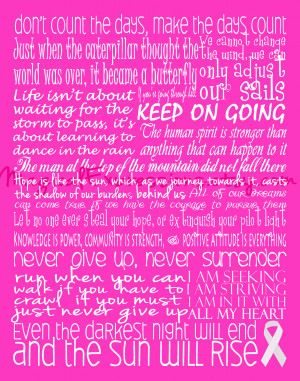 don't count the days, make the days count
Just when the caterpillar thought the
world was over, it became a butterfly
We cannot change
the wind, we can
only adjust
our sails
Life isn't about
waiting for the
storm to pass, it's
about learning to
dance in the rain
If you're going through hell
KEEP ON GOING
The human spirit is stronger than
anything that can happen to it
The man at the top of the mountain did not fall there
Hope is like the sun, which, as we journey towards it, casts
the shadow of our burdens behind us
All of our dreams
can come true if we have the courage to pursue them
Let no one ever steal your hope, or extinguish your pilot light
KNOWLEDGE IS POWER, COMMUNITY IS STRENGTH, POSITIVE ATTITUDE IS EVERYTHING
never give up, never surrender
run when you can
walk if you have to
crawl if you must
just never give up
I AM SEEKING
I AM STRIVING
I AM IN IT WITH
ALL MY HEART
Even the darkest night will end
and the sun will rise